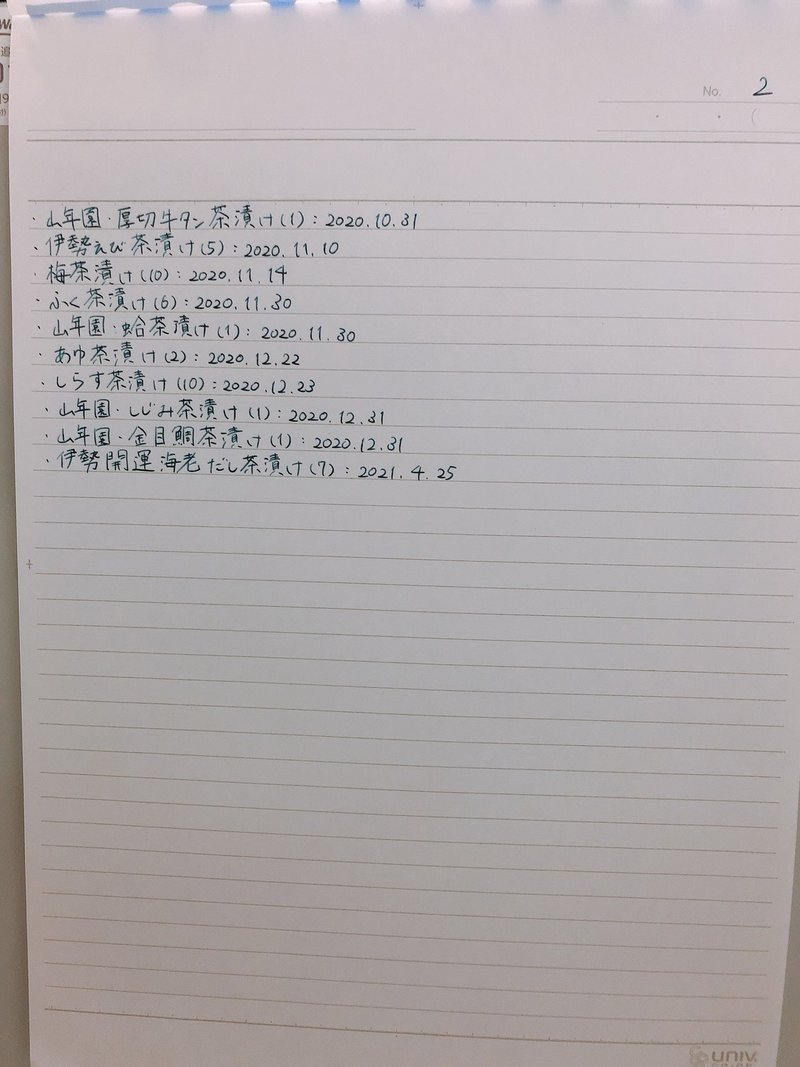 No. 2
・山年園・厚切牛タン茶漬け(1):2020.10.31
・伊勢えび茶漬け(5):2020.11.10
・梅茶漬け(10):2020.11.14
・ふく茶漬け(6):2020.11.30
・山年園・蛤茶漬け(1):2020.11.30
・あゆ茶漬け(2):2020.12.22
・しらす茶漬け(10):2020.12.23
・山年園・しじみ茶漬け(1):2020.12.31
・山年園・金目鯛茶漬け(1):2020.12.31
・伊勢開運海老だし茶漬け(7):2021.4.25
UNIV.
CO-OP